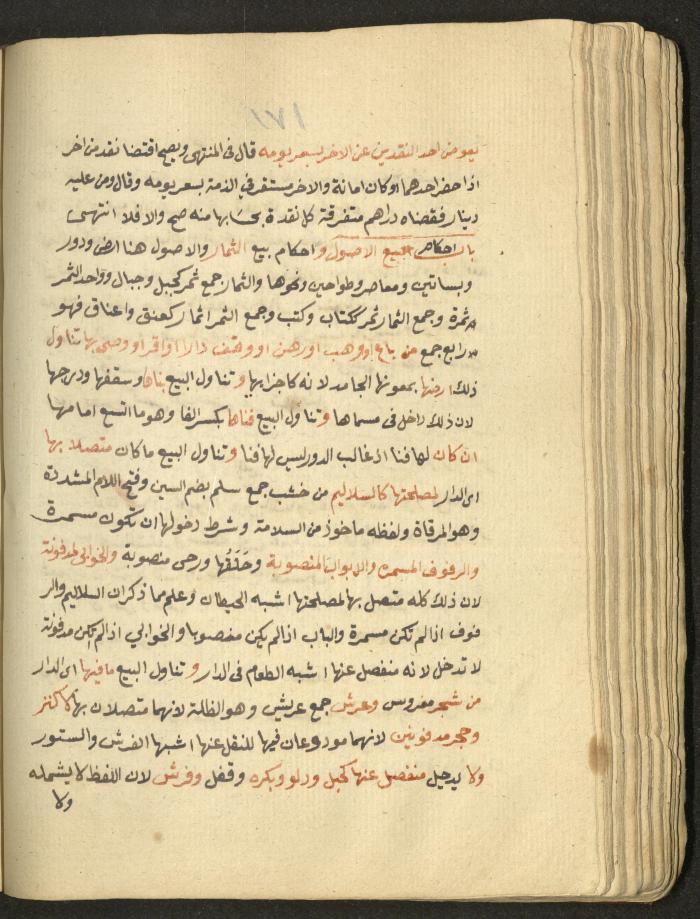 ١٧١
يعوض احد النقدين عن الاخر بسعر يومه قال فى المنتهى ويصح اقتضا نقد من اخر
اذا حضر احدهما او كان امانة والاخر مستقر في الذمة بسعر يومه وقال ومن عليه
دينار فقضاه دراهم متفرقة كل نقدة بحسابها منه صح والا فلا انتهى
باب احكام بيع الاصول واحكام بيع الثمار والاصول هنا ارض ودور
وبساتين ومعاصر وطواحين ونحوها والثمار جمع ثمر كجبل وجبال وواحد الثمر
ثمرة وجمع الثمار ثمر ككتاب وكتب وجمع الثمر اثمار كعنق واعناق فهو
رابع جمع من باع او وهب او رهن او وقف دارا او اقر او وصى بها تناول
ذلك ارضها بمعدنها الجامد لانه كاجزايها وتناول البيع بناها وسقفها ودرجها
لان ذلك داخل فى مسماها وتناول البيع فناها بكسر الفا وهو ما اتسع امامها
ان كان لها فنا اذ غالب الدور ليس لها فنا وتناول البيع ما كان متصلا بها
اى الدار لمصلحتها كالسلاليم من خشب جمع سلم بضم السين وفتح اللام المشددة
وهو المرقاة ولفظه ماخوذ من السلامة وشرط دخولها ان تكون مسمرة
والرفوف المسمره والابواب المنصوبة وحَلَقُها ورحى منصوبة والخوابي المدفونة
لان ذلك كله متصل بها لمصلحتها اشبه الحيطان وعلم مما ذكر ان السلاليم والر
فوف اذا لم تكن مسمرة والباب اذا لم يكن منصوبا والخوابي اذا لم تكن مدفونة
لا تدخل لانه منفصل عنها اشبه الطعام فى الدار وتناول البيع ما فيها اى الدار
من شجر مغروس وعرش جمع عريش وهو الظلة لانهما متصلان بها لا كنز
وحجر مدفونين لانهما مودوعان فيها للنقل عنها اشبها الفرش والستور
ولا يدخل منفصل عنها كحبل ودلو وبكره وقفل وفرش لان اللفظ لا يشمله
ولا